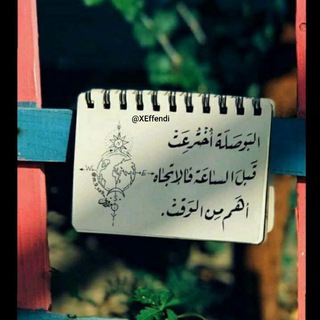 @XEffendi
البَوصَلَة أُخْتُرِعَتْ
قَبلَ السَاعَة فَالاِتجَاه
أهَم مِن الوَقتْ.
W
E